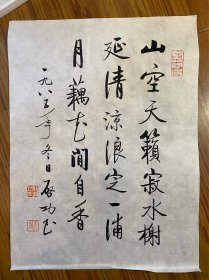 山空天籟寂水榭
延清涼浪定一浦
月藕花閒自香
一九八三年冬日啟功書